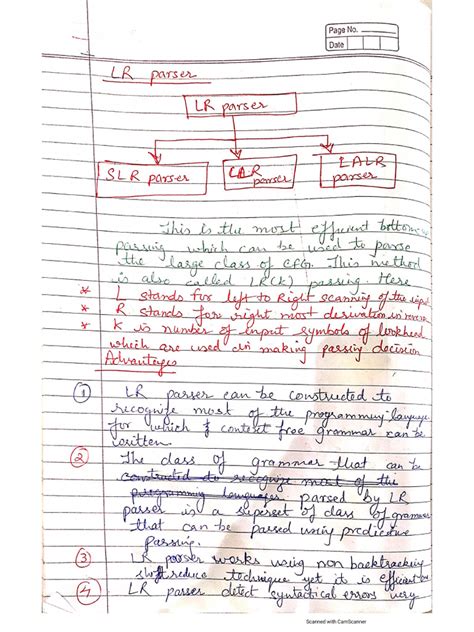 Page No.
Date
LR parser
LR parser
SLR parser
CLR parser
LALR parser
This is the most efficient bottom
parsing which can be used to parse
the large class of CFG. This method
is also called LR(k) parsing. Here
* L stands for left to Right scanning of the input
* R stands for right most derivation in reverse
* K is number of input symbols of lookhead
which are used in making parsing decision
Advantages
① LR parser can be constructed to
recognize most of the programming language
for which context free grammar can be
written.
② The class of grammar that can be
constructed to recognize most of the
programming languages parsed by LR
parser is a superset of class of grammar
that can be parsed using predictive
parsing.
③ LR parser works using non backtracking
shift reduce technique yet it is efficient
④ LR parser detect syntactical errors very
Scanned with CamScanner